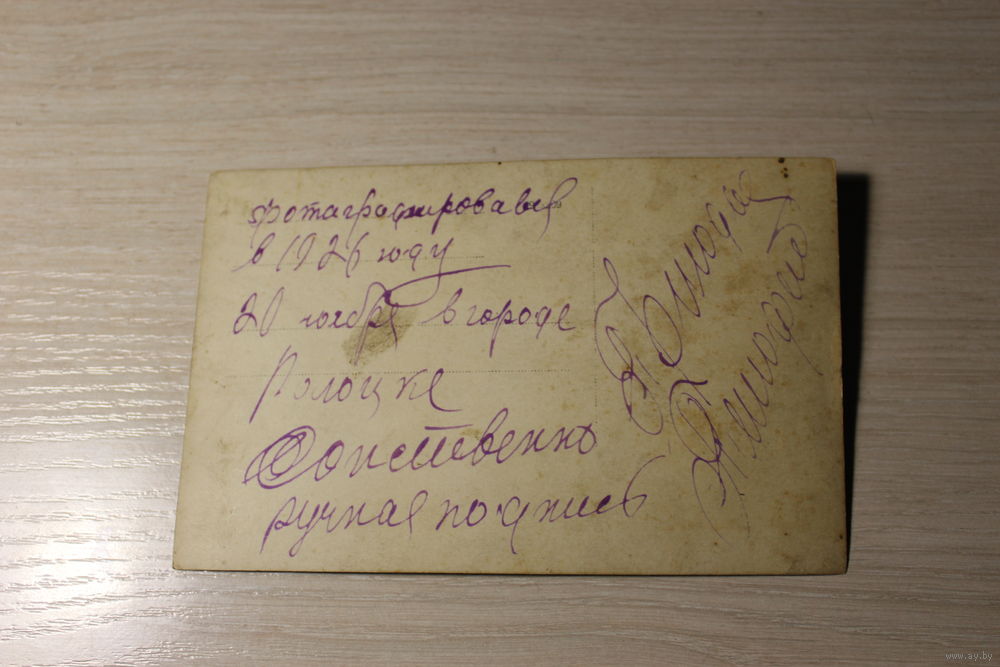 фотаграфировався
в 1926 году
20 ноября в городе
Полоцке
Сопственно
ручная подпись
www.ay.by